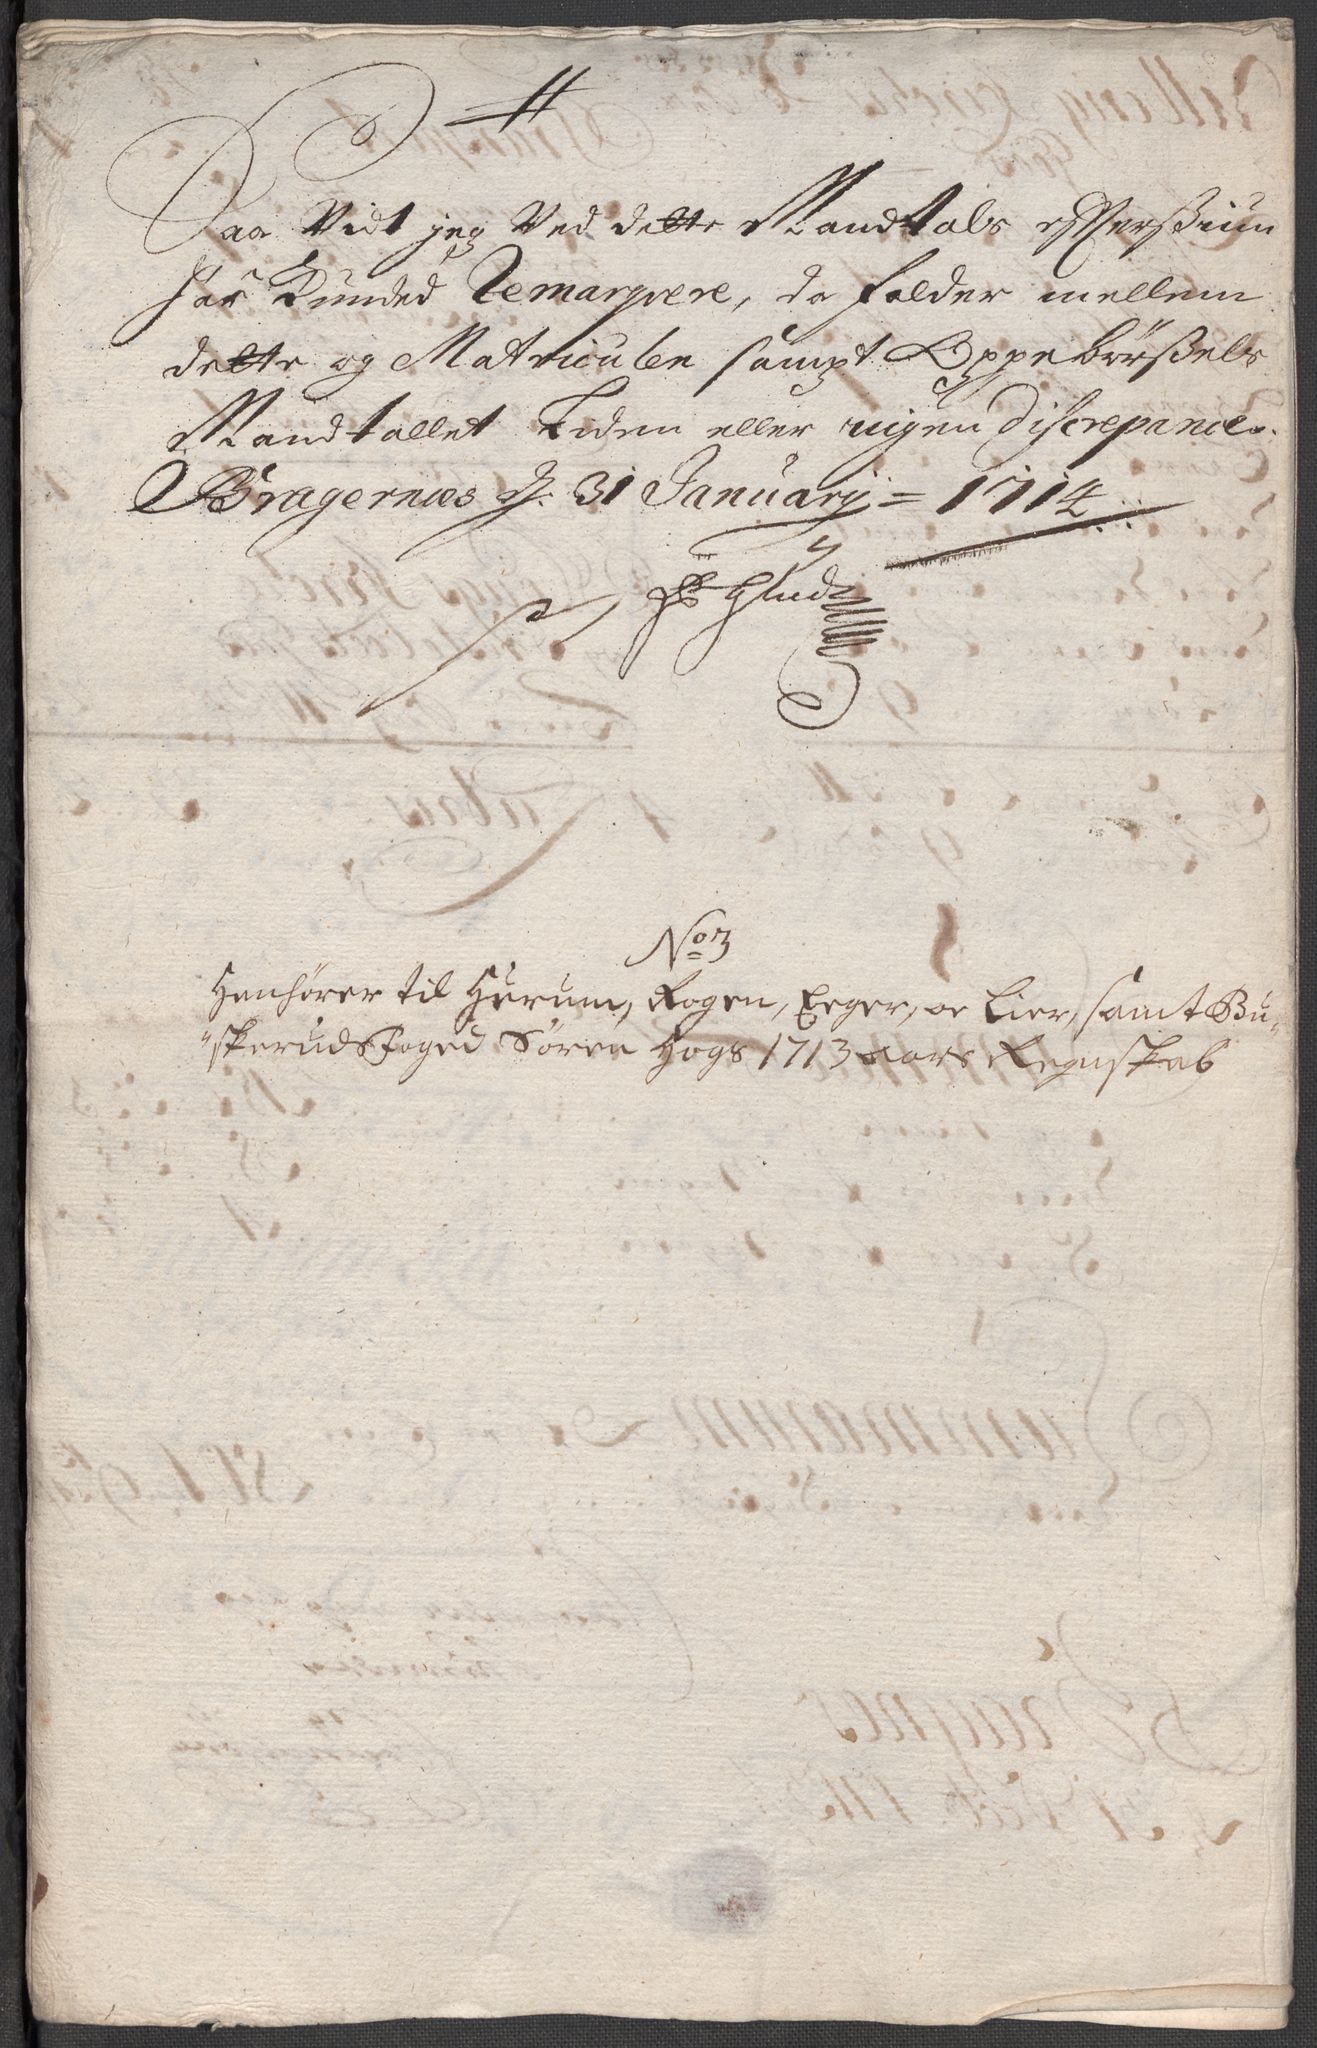 Saa Vidt jeg Ved dette Mandtals
har Kunded Remarqvere, da falder mellem
dette og Matriculen sampt Oppebørßels
Mandtallet Liden eller ingen Discrepance.
Bragernæs d: 31 January = 1714
No 3
Henhører til Hurum, Rogen, Eeger, oc Lier, samt Bu-
"skeruds Foged Søren Hogs 1713 aars Regnskab